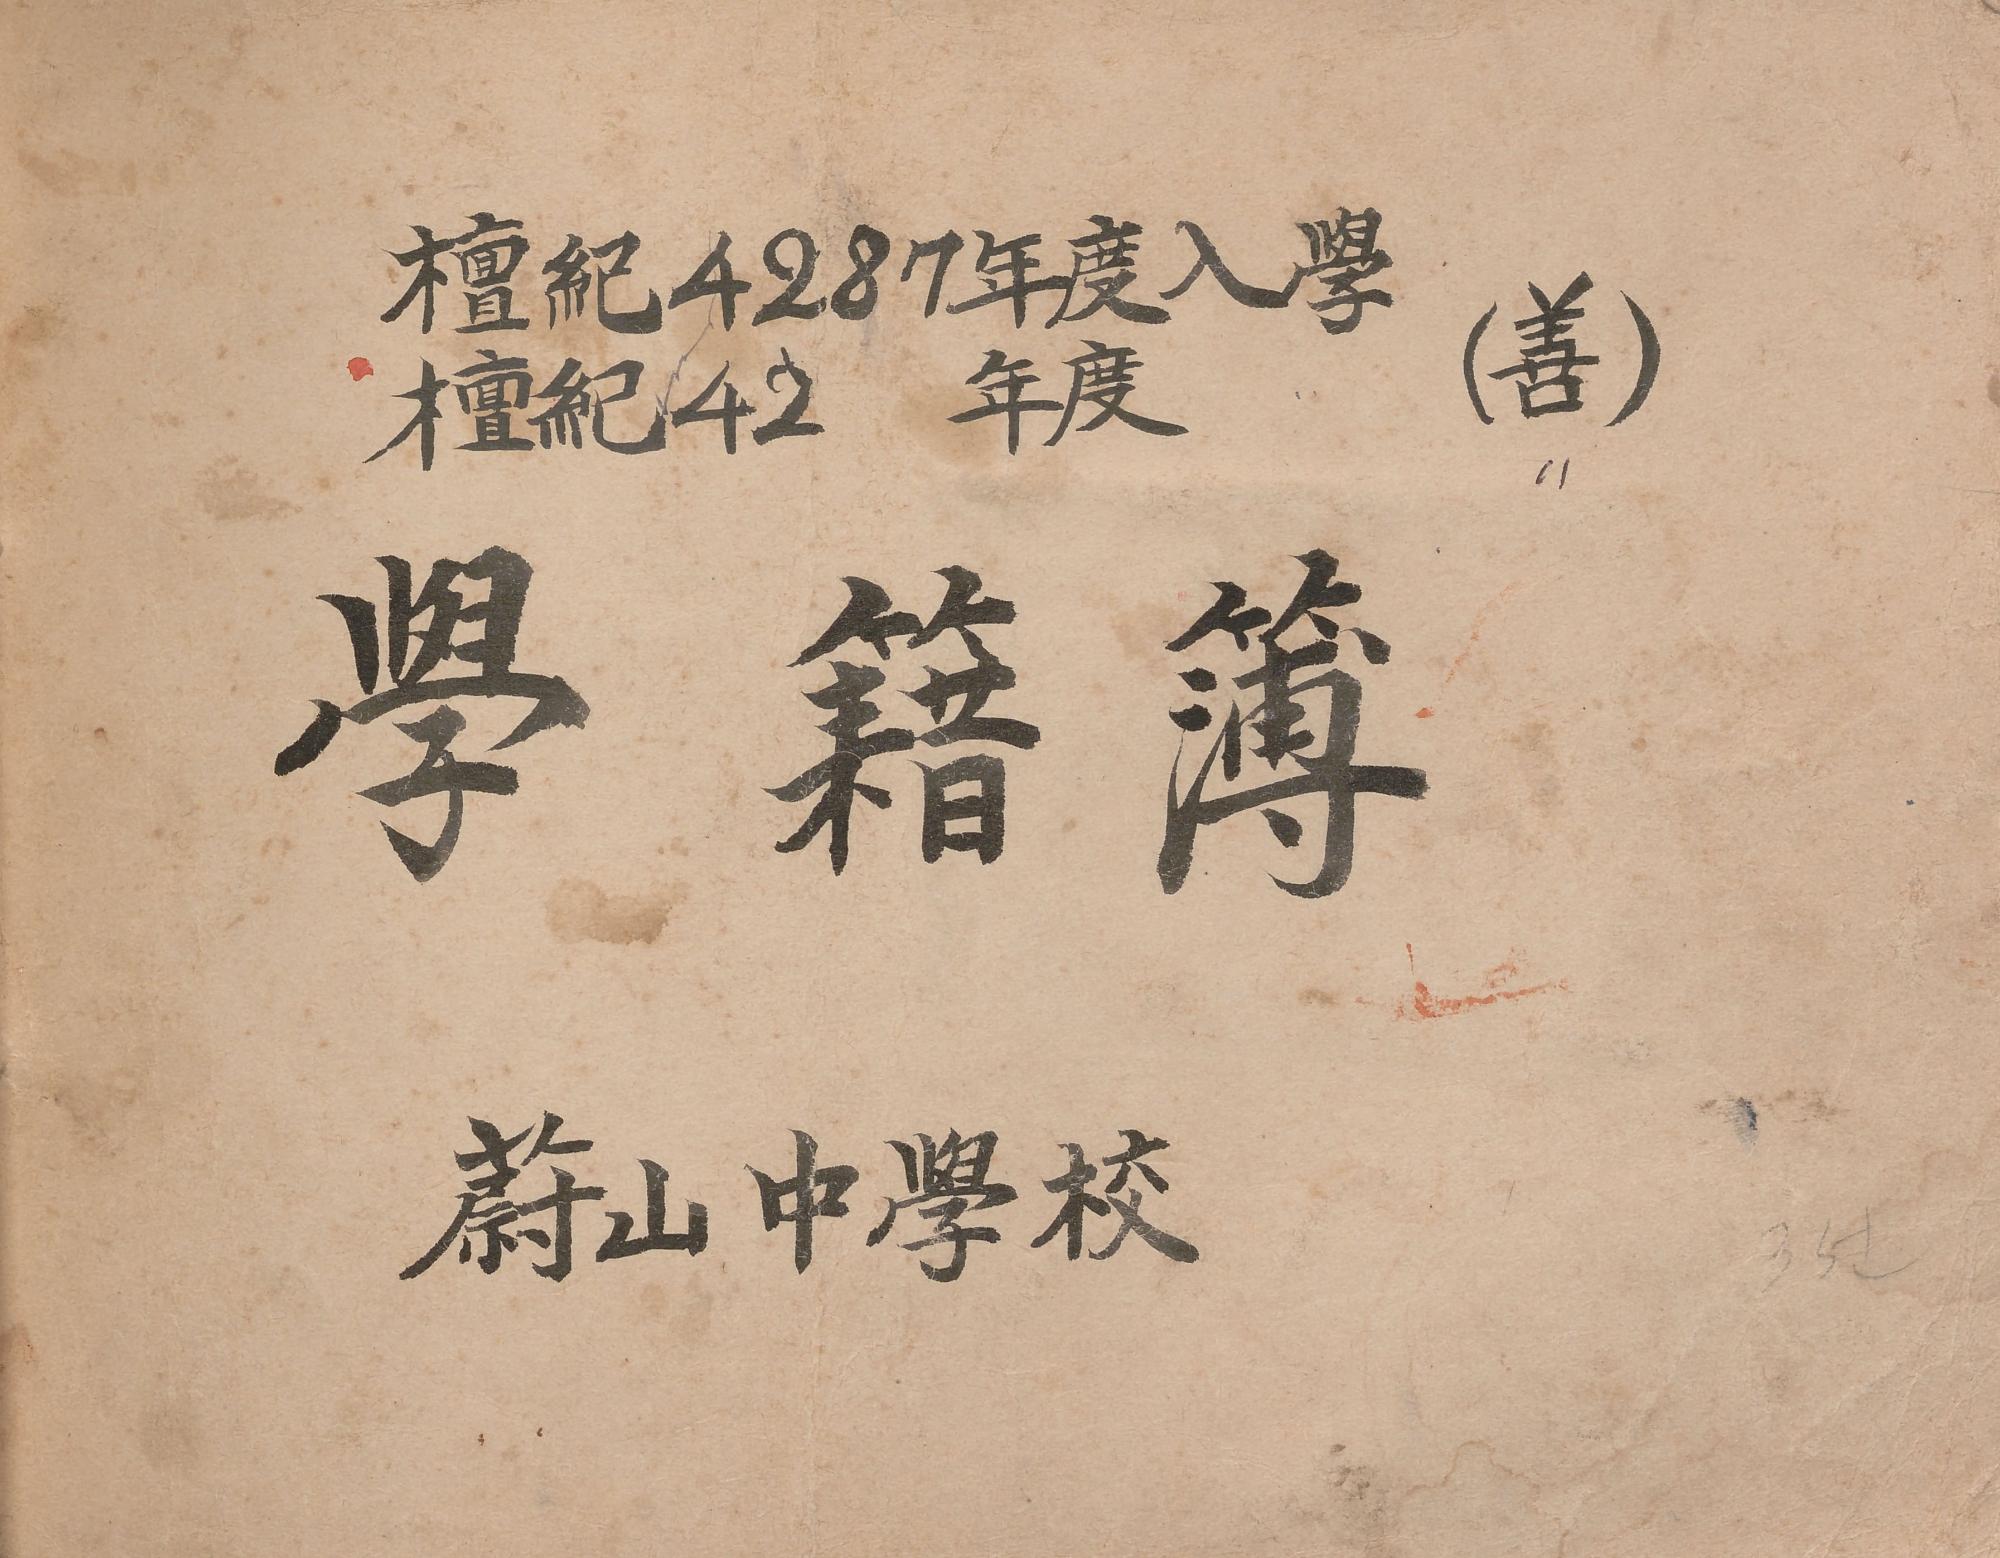 檀紀4287年度入學
檀紀42 年度
(善)
11
學籍簿
蔚山中學校